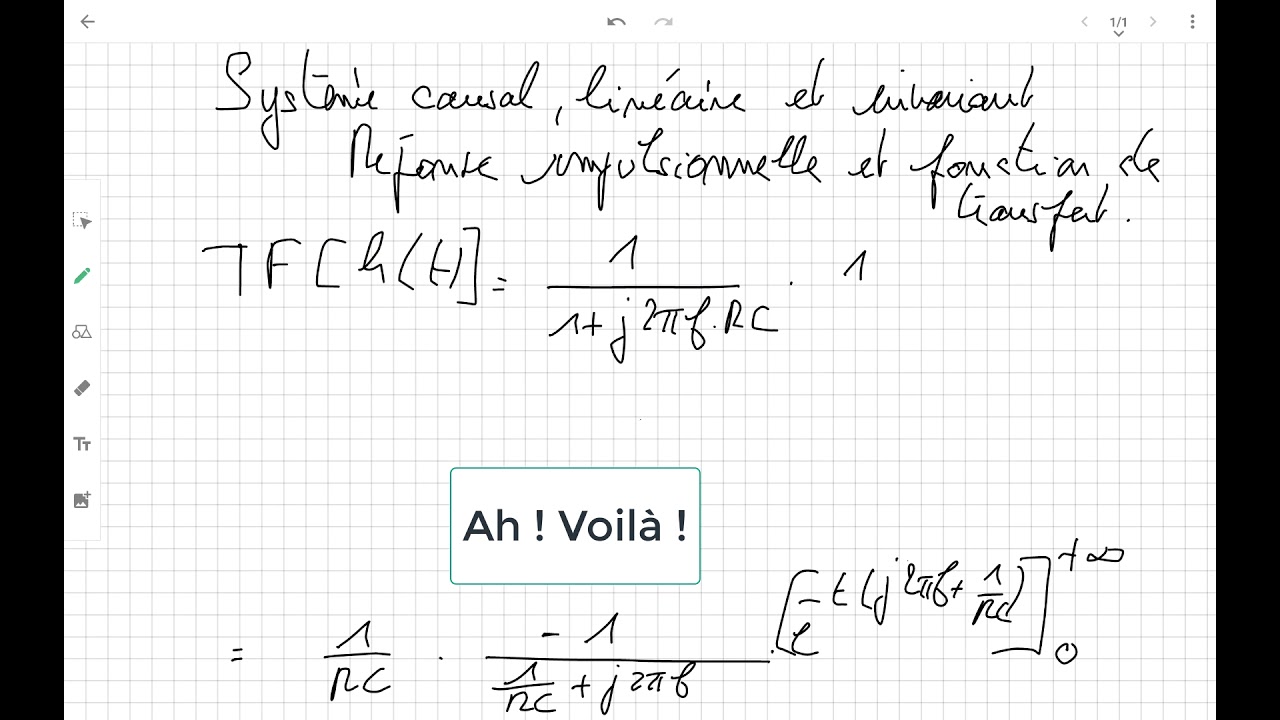 1/1
Système causal, linéaire et invariant
Réponse impulsionnelle et fonction de
transfert.
TF[h(t)] = 1/(1+j2πf.RC) . 1
Tт
Ah ! Voilà !
= 1/RC . -1/(1/RC + j2πf) . [e^(-t(j2πf + 1/RC))]_0^+∞